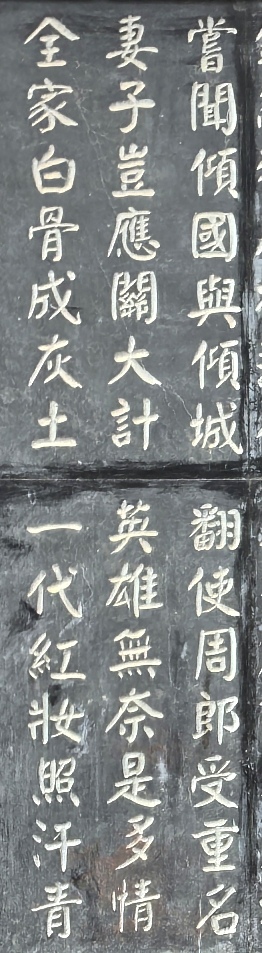 嘗聞傾國與傾城
翻使周郎受重名
妻子豈應關大計
英雄無奈是多情
全家白骨成灰土
一代紅妝照汗青